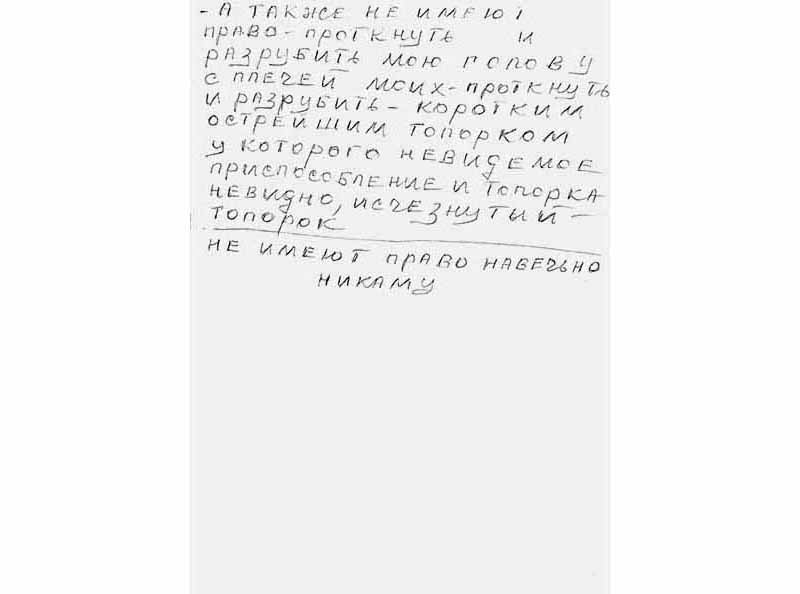 - А ТАКЖЕ НЕ ИМЕЮТ
ПРАВО - ПРОТКНУТЬ И
РАЗРУБИТЬ МОЮ ГОЛОВУ
С ПЛЕЧЕЙ МОИХ - ПРОТКНУТЬ
И РАЗРУБИТЬ - КОРОТКИМ
ОСТРЕЙШИМ ТОПОРКОМ
У КОТОРОГО НЕВИДЕМОЕ
ПРИСПОСОБЛЕНИЕ И ТОПОРКА
НЕВИДНО, ИСЧЕЗНУТЫЙ -
ТОПОРОК
НЕ ИМЕЮТ ПРАВО НАВЕЧЬНО
НИКАМУ